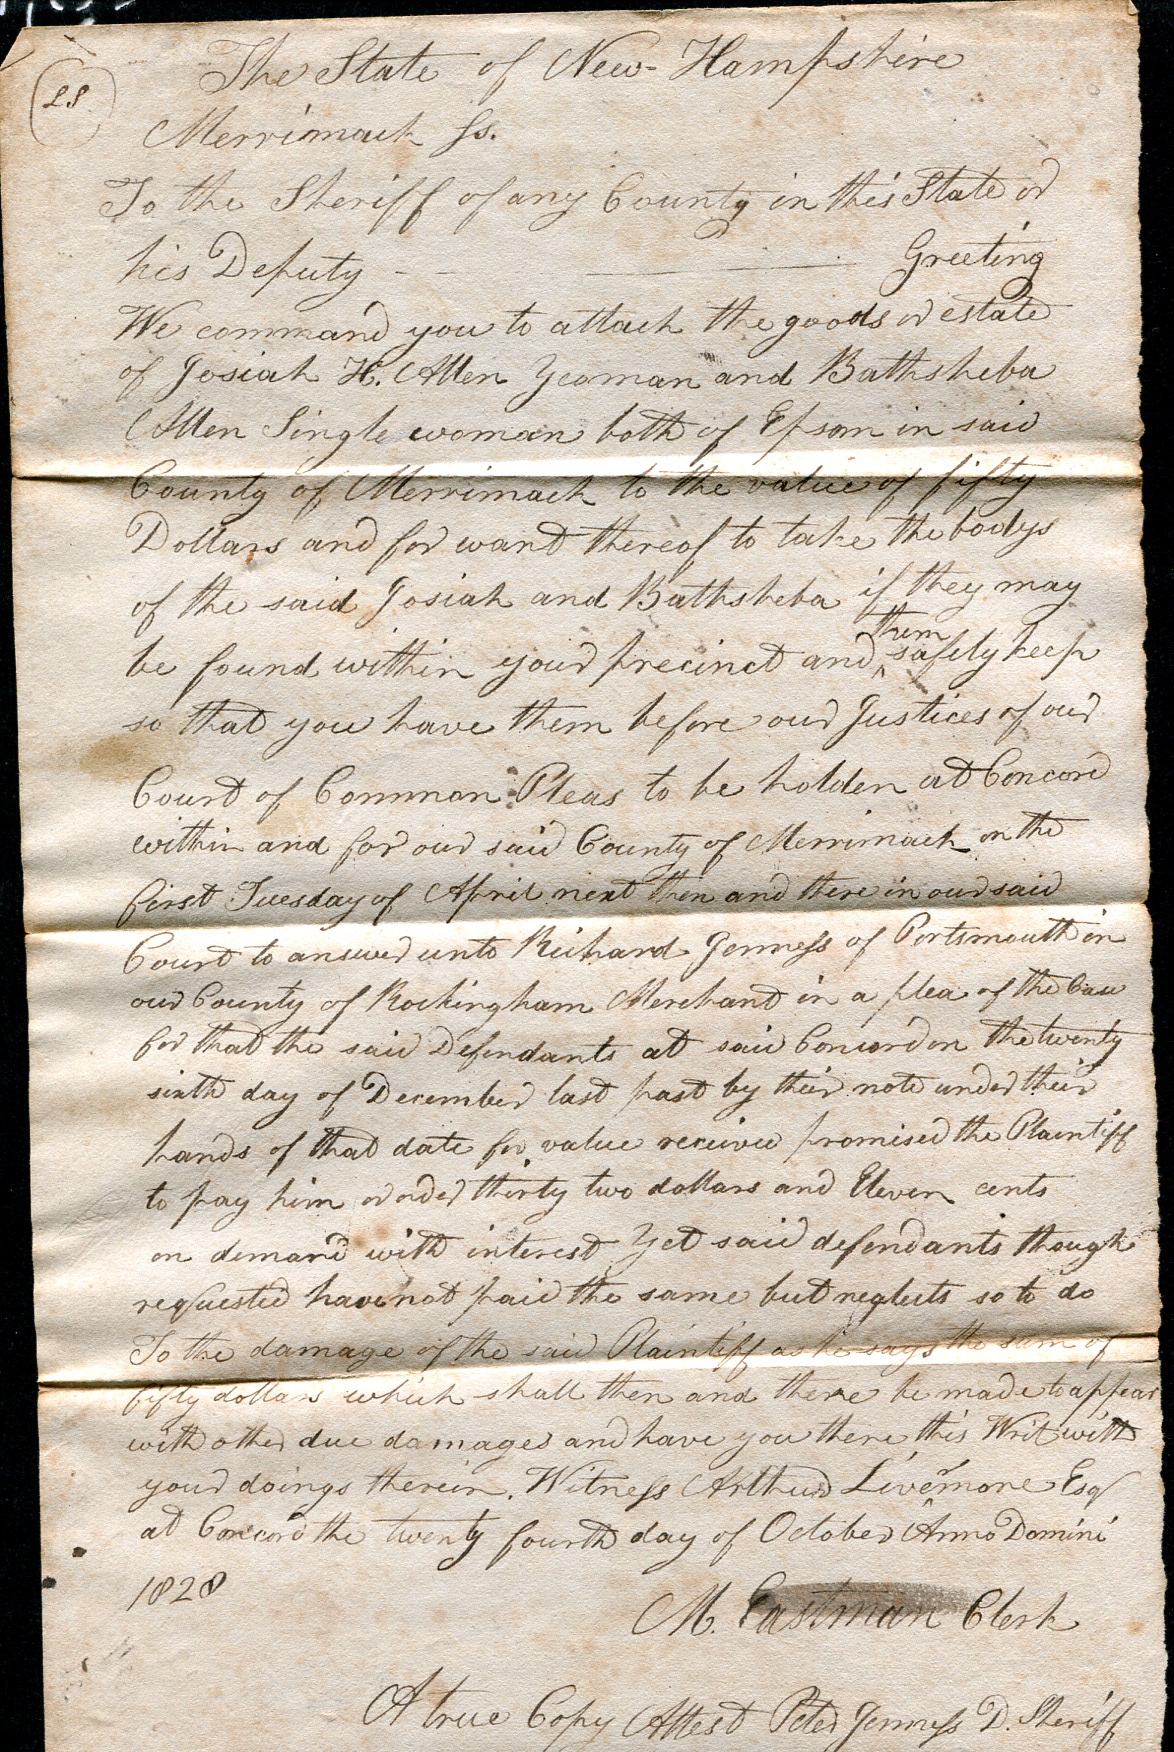 LS
The State of New-Hampshire
Merrimack ss.
To the Sheriff of any County in this State or
his Deputy - - Greeting
We command you to attach the goods or estate
of Josiah H. Allen Yeoman and Bathsheba
Allen Single woman both of Epsom in said
County of Merrimack to the value of fifty
Dollars and for want thereof to take the bodys
of the said Josiah and Bathsheba if they may
be found within your precinct and ^them safely keep
so that you have them before our Justices of our
Court of Common Pleas to be holden at Concord
within and for our said County of Merrimack on the
first Tuesday of April next then and there in our said
Court to answer unto Richard Jenness of Portsmouth in
our County of Rockingham Merchant in a plea of the Case
for that the said Defendants at said Concord on the twenty
sixth day of December last past by their note under their
hands of that date for value received promised the Plaintiff
to pay him or order thirty two dollars and Eleven cents
on demand with interest Yet said defendants though
requested have not paid the same but neglects so to do
To the damage of the said Plaintiff as he says the sum of
fifty dollars which shall then and there be made to appear
with other due damages and have you there this Writ with
your doings therein. Witness Arthur Livermore Esq
at Concord the twenty fourth day of October Anno Domini
1828
M. Eastman Clerk
A true Copy Attest Peter Jenness D. Sheriff